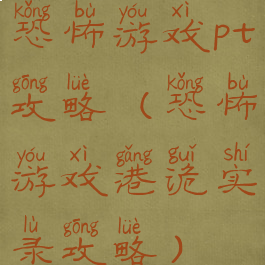 kǒng bù yóu xì
恐怖游戏pt
gōng lüè kǒng bù
攻略(恐怖
yóu xì gǎng guǐ shí
游戏港诡实
lù gōng lüè
录攻略)